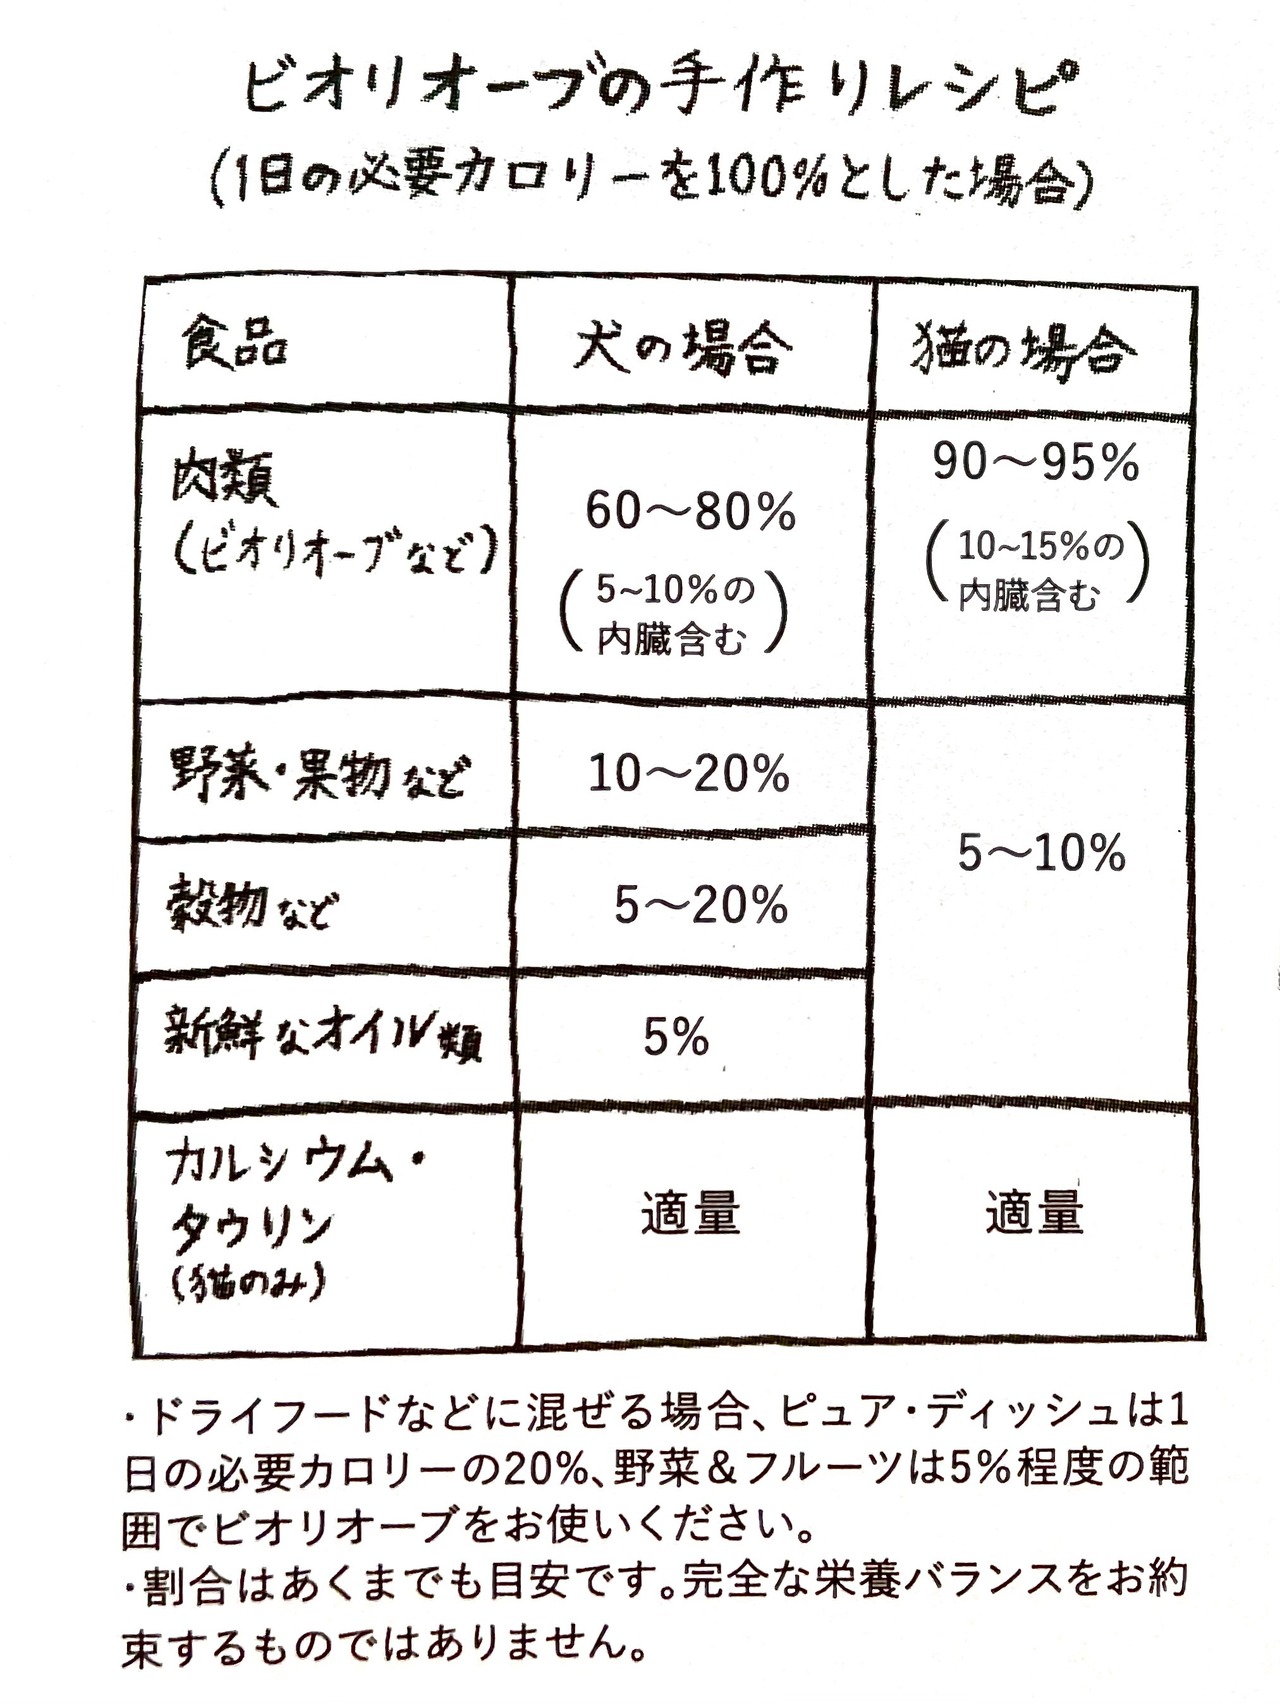 ビオリオーブの手作りレシピ
(1日の必要カロリーを100%とした場合)
食品 犬の場合 猫の場合
肉類
(ビオリオーブなど)
60〜80%
(5~10%の
内臓含む)
90〜95%
(10~15%の
内臓含む)
野菜・果物など 10〜20%
5〜10%
穀物など 5〜20%
新鮮なオイル類 5%
カルシウム・
タウリン
(猫のみ)
適量 適量
・ドライフードなどに混ぜる場合、ピュア・ディッシュは1
日の必要カロリーの20%、野菜&フルーツは5%程度の範
囲でビオリオーブをお使いください。
・割合はあくまでも目安です。完全な栄養バランスをお約
束するものではありません。